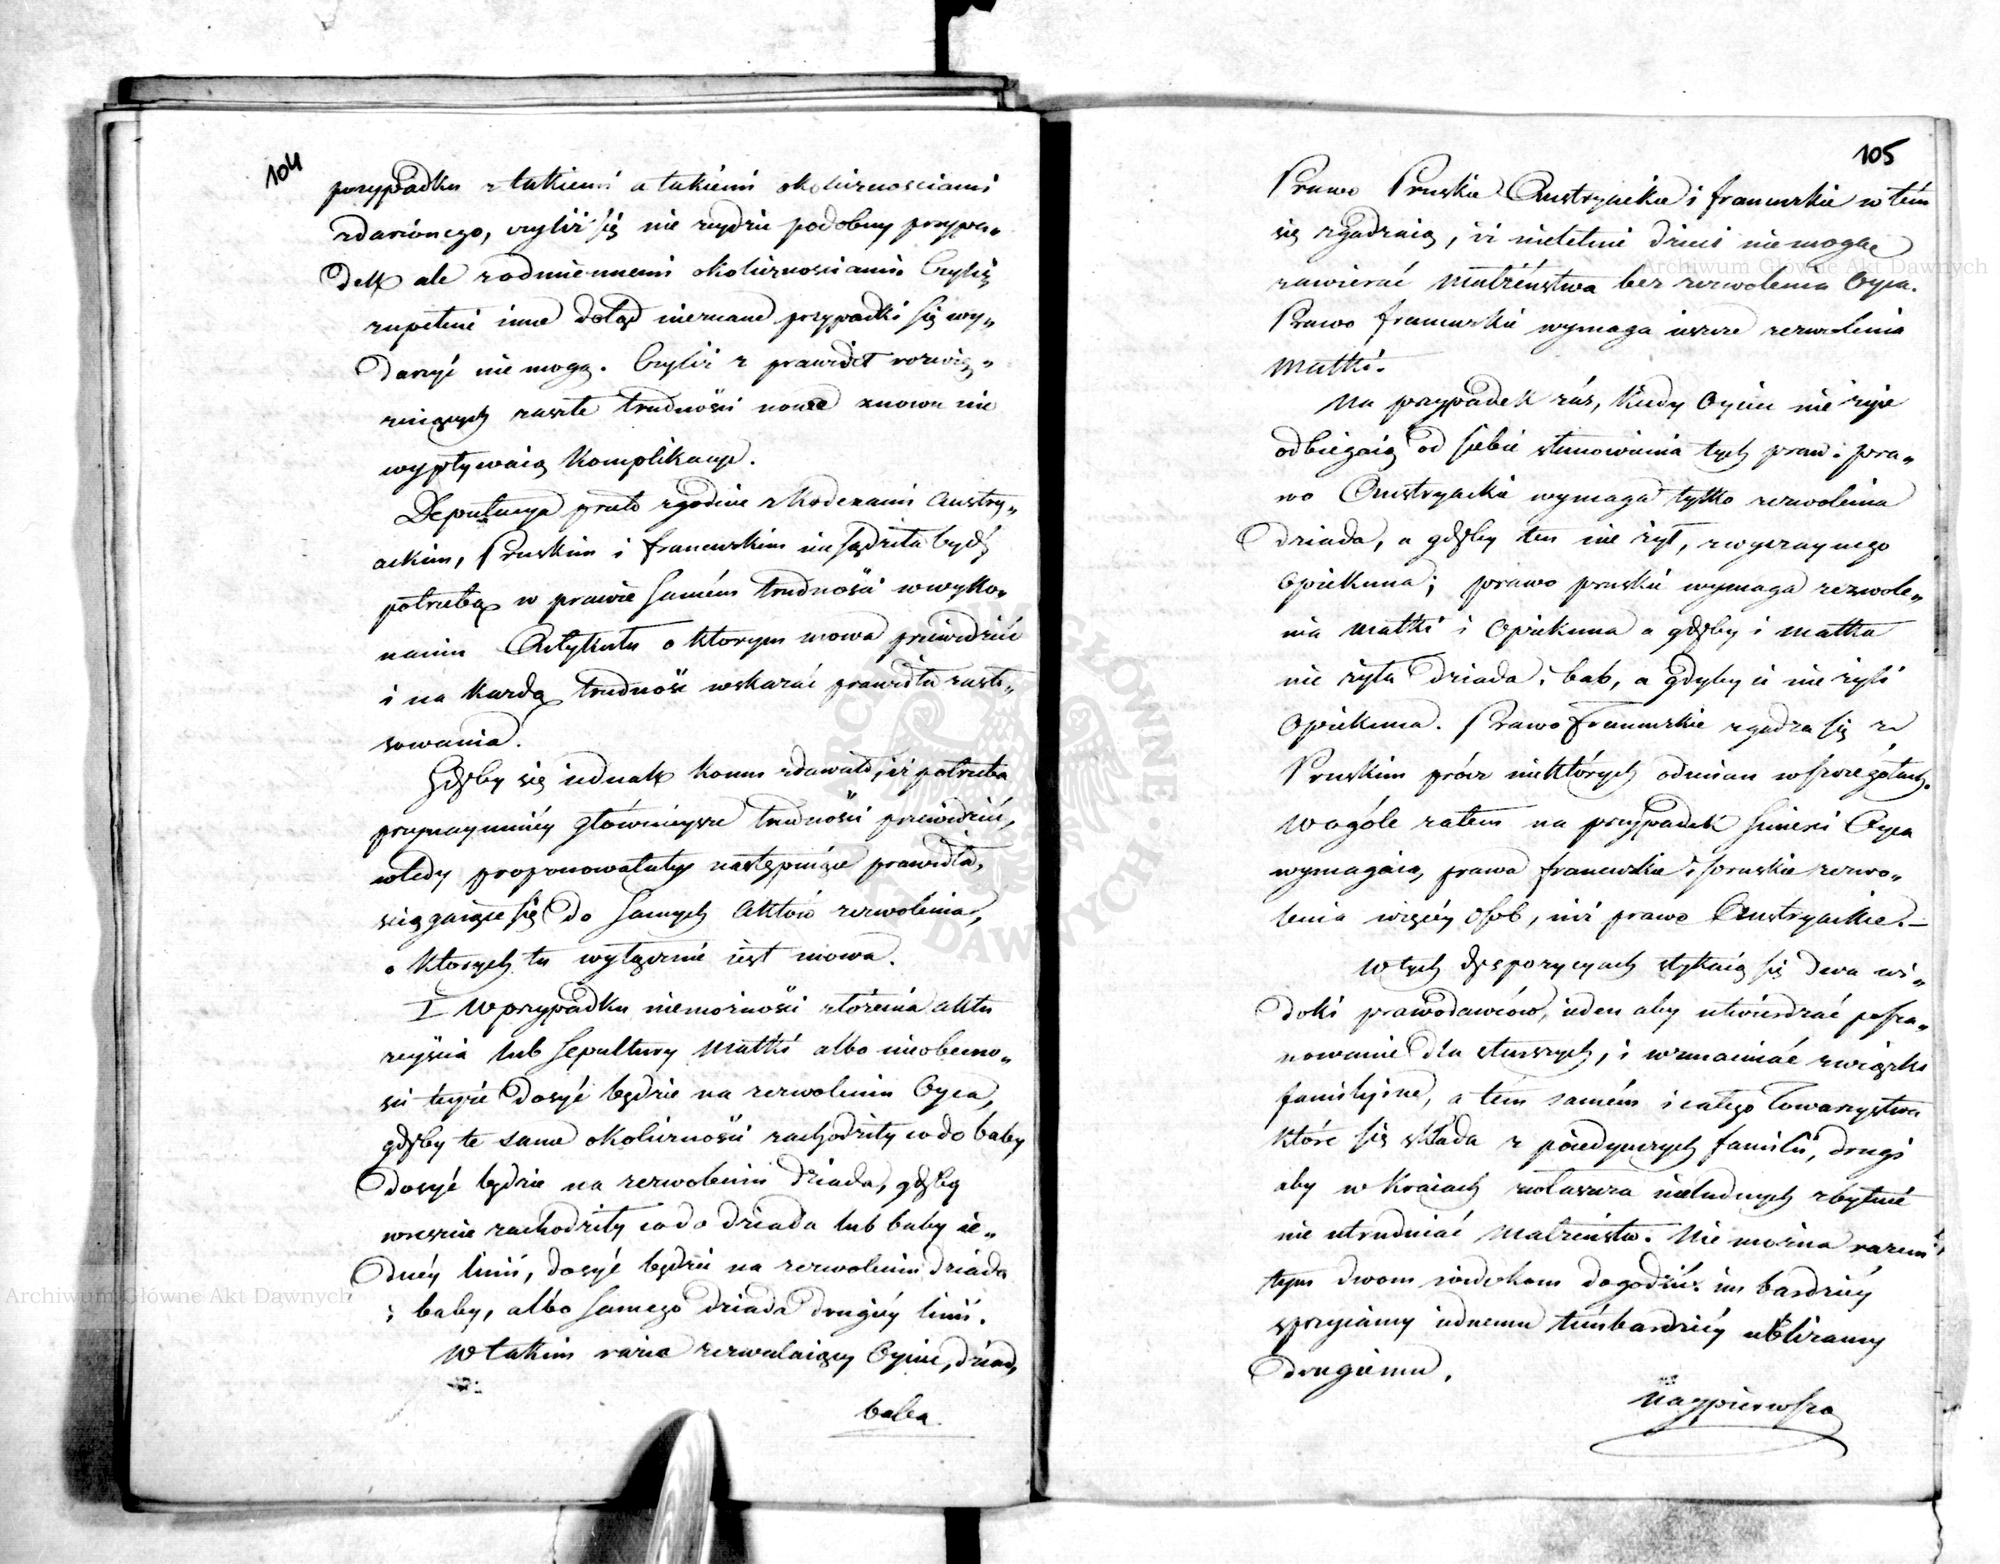 104
przypadku z takiemi a takiemi okolicznościami
zdarzonego, czyliż się nie zeydzie podobny przypa„
dek ale z odmiennemi okolicznościami. Czyliż
zupełnie inne dotąd nieznane przypadki się wy„
darzyć nie mogą. Czyliż z prawideł rozwią„
zuiących zaszłe trudności nowe znowu nie
wypływaią komplikacye.
Deputacya przeto zgodnie z Kodexami Austry„
ackim, Pruskim i francuskim nie sądziła bydź
potrzebą w prawie samém trudności w wyko„
naniu Artykułu o ktorym mowa przewidzieć
i na każdą trudność wskazać prawidła zasto„
sowania.
Gdyby się iednak komu zdawało, iż potrzeba
przynaymniéy główniéysze trudności przewidzieć,
wtedy proponowałaby następuiące prawidła,
sciągaiące się do samych Aktów zezwolenia,
o ktorych tu wyłącznie iest mowa.
I W przypadku niemożności złożenia aktu
zeyścia lub sepultury Matki albo nieobecno„
ści teyże dosyć będzie na zezwoleniu Oyca,
gdyby te same okoliczności zachodziły co do baby
dosyć będzie na zezwoleniu dziada, gdyby
wreszcie zachodziły co do dziada lub baby ie„
dnéy linii, dosyć będzie na zezwoleniu dziada
i baby, albo samego dziada drugiéy linii.
W takim razie zezwalaiący Oyciec, dziad,
baba.
105
Prawo Pruskie Austryackie i francuzkie w tém
się zgadzaią, iż nieletnie dzieci nie mogą
zawierać Małżeństwa bez zezwolenia Oyca.
Prawo francuzkie wymaga ieszcze zezwolenia
Matki.
Na przypadek zaś, kiedy Oyciec nie żyie
odbiegaią od siebie stanowienia tych praw: pra„
wo Austryackie wymaga tylko zezwolenia
dziada, a gdyby ten nie żył, zwyczaynego
Opiekuna; prawo pruskie wymaga zezwole„
nia Matki i Opiekuna a gdyby i matka
nie żyła dziada i bab, a gdyby ci nie żyli
Opiekuna. Prawo francuzkie zgadza się z
Pruskim prócz niektórych odmian w szczegółach.
W ogóle zatem na przypadek śmierci Oyca
wymagaią, prawa francuzkie i pruskie zezwo„
lenia więcéy osób, niż prawo Austryackie.—
W tych dyspozycyach stykaią się dwa wi„
doki prawodawców, ieden aby utwierdzać posza„
nowanie dla starszych, i wzmacniać związki
familyine, a tém samém i całego Towarzystwa
które się składa z poiedynczych familii, drugi
aby w kraiach zwłaszcza nieludnych zbytnie
nie utrudniać Małżeństw. Nie można razem
tym dwom widokom dogodzić: im bardziéy
sprzyiamy iednemu tém bardziéy ubliżamy
drugiemu.
Naypierwsza
Archiwum Główne Akt Dawnych
Archiwum Główne Akt Dawnych
ARCHIWUM GŁÓWNE AKT DAWNYCH